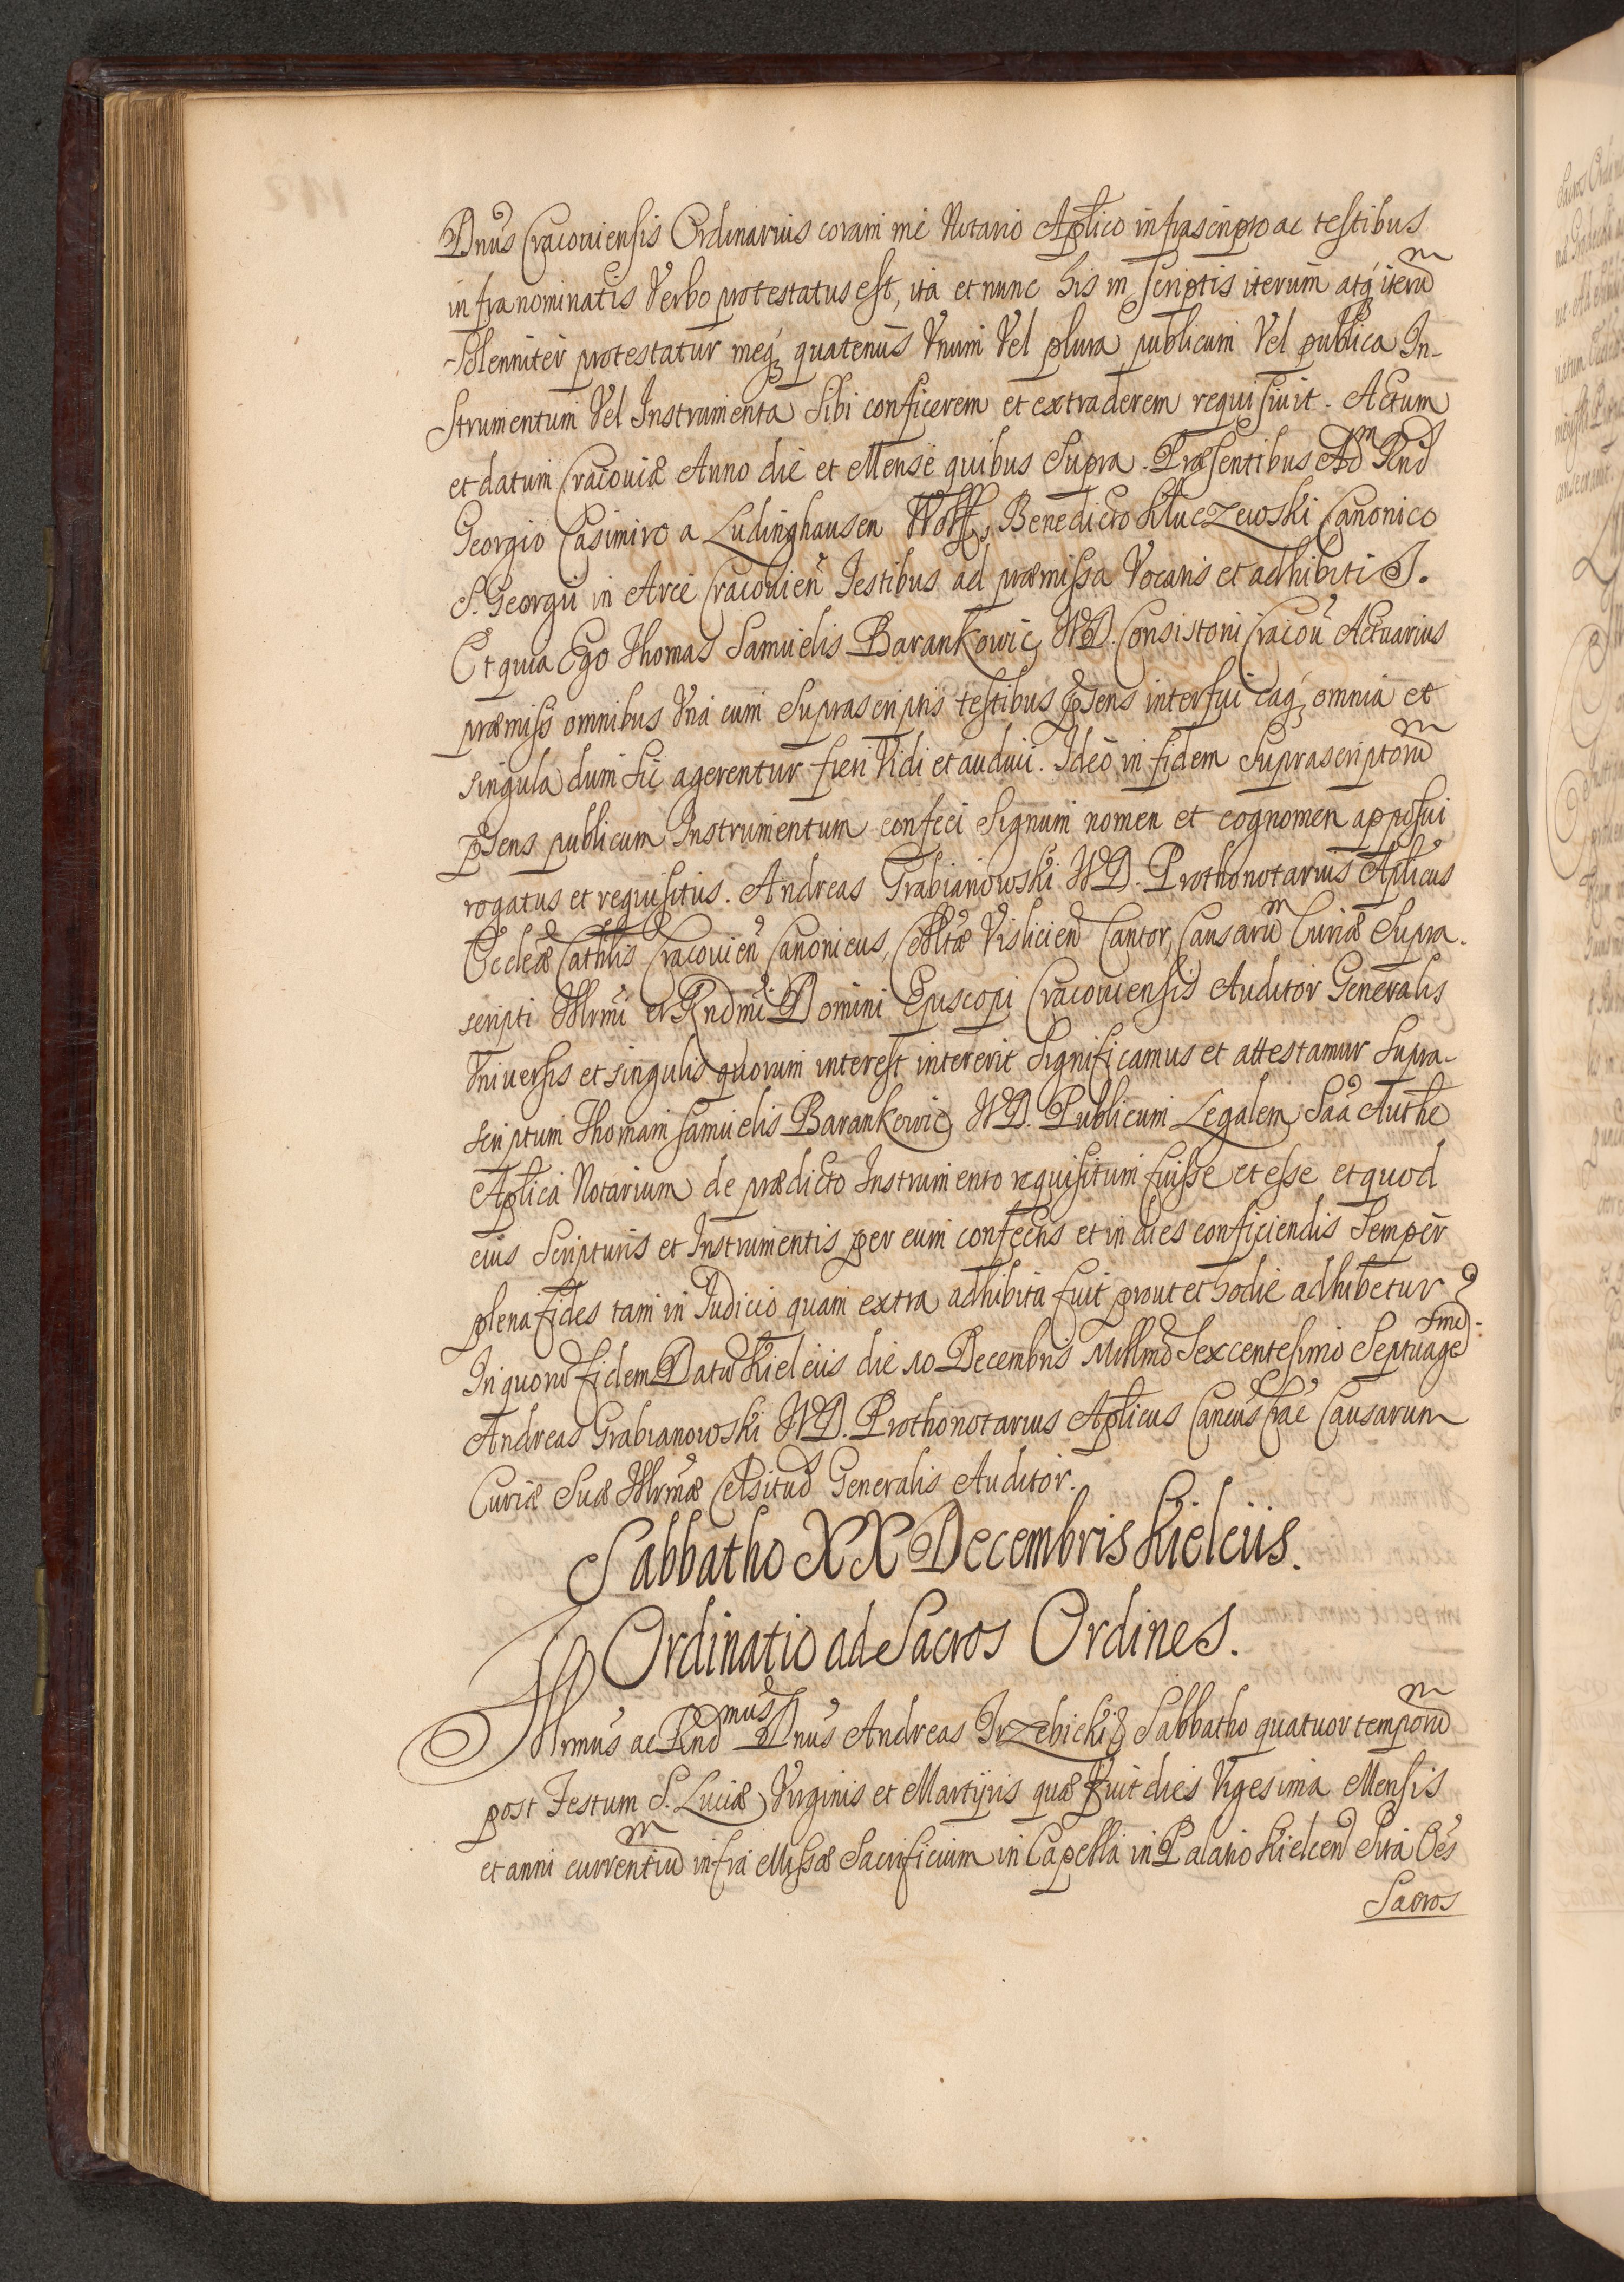 Dnus Cracoviensis Ordinarius coram me Notario Aplico infrascripto ac testibus
infranominatis Verbo protestatus est, ita et nunc his in scriptis iterum atq́ iterū
Solenniter protestatur meq́ quatenus Vnum Vel plura publicum Vel publica In-
strumentum Vel Instrumenta Sibi conficerem et extraderem requisivit. Actum
et datum Cracoviæ Anno die et Mense quibus Supra. Præsentibus Adm Rnd
Georgio Casimiro a Ludinghausen Wolff, Benedicto Kluczewski Canonico
S. Georgii in Arce Cracovien Testibus ad præmissa Vocatis et adhibitis.
Et quia Ego Thomas Samuelis Barankowic, ND. Consistorii Cracov Actuarius
præmiss omnibus Vna cum Suprascriptis testibus p̄sens interfui eaq́ omnia et
singula dum sic agerentur fieri Vidi et audivi. Ideo in fidem Suprascriptorū
p̄sens publicum Instrumentum confeci Signum nomen et cognomen apposui
rogatus et requisitus. Andreas Grabianowski ND. Prothonotarius Aplicus
Eccleæ Cathlis Cracovien Canonicus, Colltæ Vislicien Cantor, Causarū Curiæ Supra-
scripti Illrmi et Rndmi Domini Episcopi Cracoviensis Auditor Generalis
Vniversis et singulis quorum interest intererit Significamus et attestamur Supra-
scriptum Thomam Samuelis Barankowic, ND. Publicum Legalem Saa Authe
Aplica Notarium de prædicto Instrumento requisitum fuisse et esse et quod
eius Scripturis et Instrumentis per eum confectis et in dies conficiendis Semper
plena fides tam in Iudicio quam extra adhibita fuit prout et hodie adhibetur
In quorū fidem Datū Kielciis die 10 Decembris Millmo Sexcentesimo Septuagesimo.
Andreas Grabianowski ND. Prothonotarius Aplicus Cancus Crac Causarum
Curiæ Suæ Illrmæ Celsitud Generalis Auditor.
Sabbatho XX Decembris Kielciis.
Ordinatio ad Sacros Ordines.
Illrmus ac Rndmus Dnus Andreas Trzebicki Sabbatho quatuor temporū
post Festum S. Luciæ Virginis et Martyris quæ fuit dies Vigesima Mensis
et anni currentiū infra Missæ Sacrificium in Capella in Palatio Kielcen Sita Oēs
Sacros